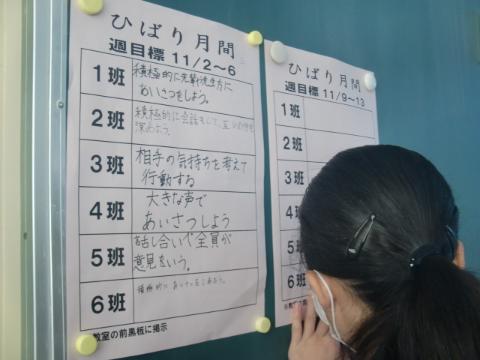 ひばり月間
週目標 11/2~6
1班
積極的に先輩先生方に
あいさつをしよう。
2班
積極的に会話をして、互いの仲を
深めよう。
3班
相手の気持ちを考えて
行動する
4班
大きな声で
あいさつしよう
5班
話し合いで全員が
意見をいう。
6班
積極的に
教室の前黒板に掲示
ひばり月間
週目標 11/9~13
1班
2班
3班
4班
5班
6班